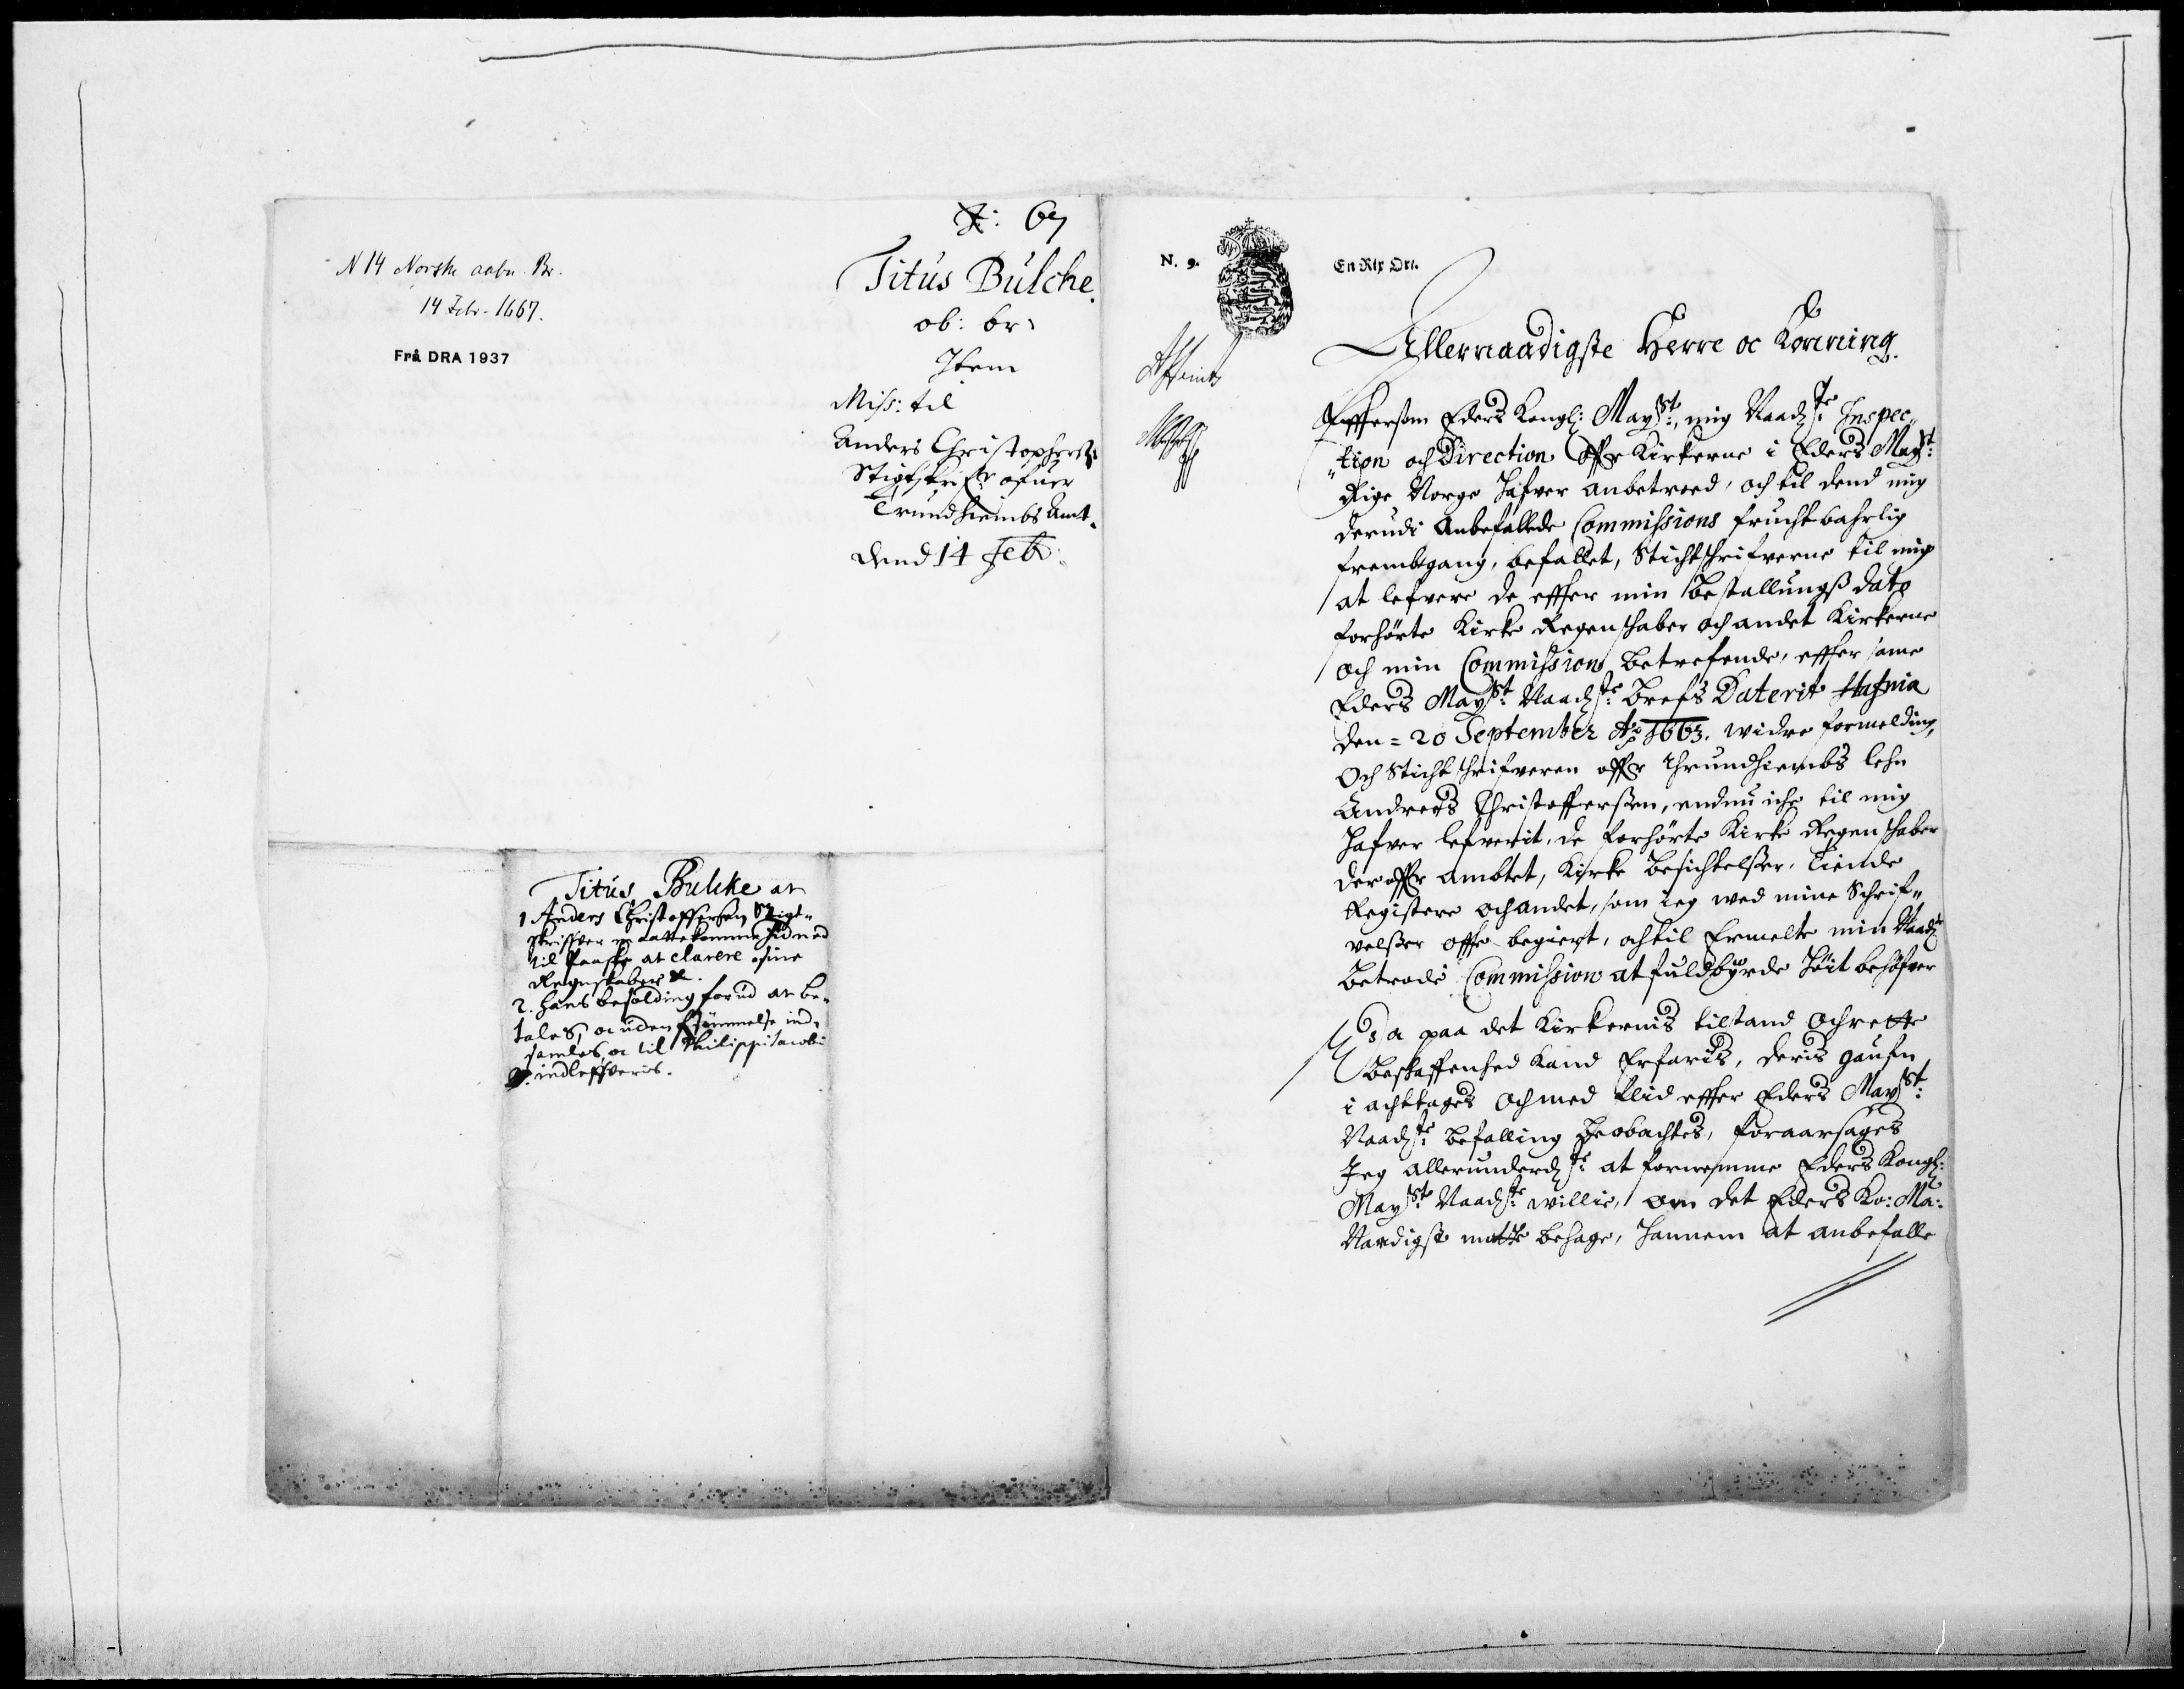 N 14 Norske aabn. Br.
14 Febr. 1667.
Frå DRA 1937
67
Titus Bulche.
ob: br:
Item
Miss: til
Anders Christophers:
Stigtskrifr ofuer
Trundhiembs Amt.
dend 14 Feb:
Titus Bulcke at
1 Anders Christoffersen Stigt-
skriffver maatte komme hid ned
til Paaske at clarere sine
Regnskaber &.
2. hans besolding forud at be-
tales, oc uden forsømmelse ind-
samles, oc til Philippi Jacobi
indleffveris.
N. 9.
En Rix Ort.
Allernaadigste Herre oc Konning.
Effersom Eders Kongl: Mayst:, mig Naadste: Inspec„
„tion och Direction offr Kirkerne i Eders Mayst:
Rige Norge hafver anbetroed, och til dend mig
derudi anbefallede Commissions fruchtbahrlig
frembgang, befallet, Stichtskrifverne til mig
at lefvere de effter min bestallungs dato
forhørte Kirke Regenskaber och andet Kirkerne
och min Commission betrefende, effter same
Eders Mayst: Naadste: brefs Daterit Hafnia
den = 20 September Ao 1663. widre formelding,
Och Stichtskrifveren offr Thrundhiembs lehn
Andrees Christoffersen, endnu iche til mig
hafver lefverit, de forhørte Kirke Regenskaber
der offr ambtet, Kirke besichtelser, Tiende
Registere och andet, som ieg wed mine Schrif„
velser offte begiert, och til Ermelte min Naadst
betrode Commission at fuldbyrde høit behøfver
Da paa det Kirkernis tilstand och rette
beskaffenhed kand Erfaris, deris gaufn
i acht tages och med flid effter Eders Mayst:
Naadste: befalling beobachtes, foraarsages
Jeg allerunderdste: at fornemme Eders Kongl:
Mayst: Naadste: willie, om det Eders Ko: Ma:
Naadigst motte behage, hannem at anbefalle